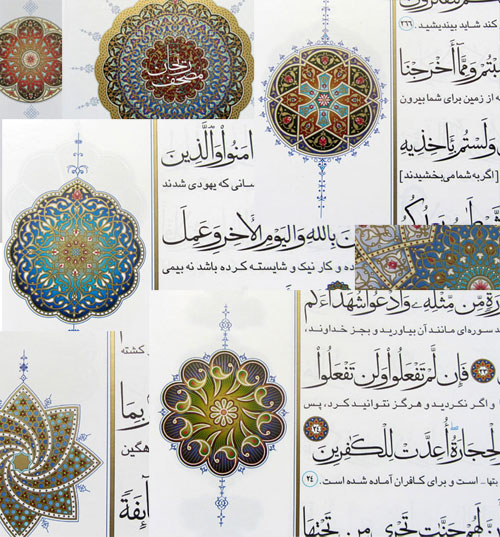 مصحف ریحان
۲۶۶
کند شاید بیندیشید.
وَمِمَّا أَخْرَجْنَا
ه از زمین برای شما بیرون
وَلَسْتُم بِآخِذِيهِ
[اگر به شما می‌بخشیدند]
آمَنُوا وَالَّذِينَ
سانی که یهودی شدند
بِاللَّهِ وَالْيَوْمِ الْآخِرِ وَعَمِلَ
ده و کار نیک و شایسته کرده باشد نه بیمی
مِّن مِّثْلِهِ وَادْعُوا شُهَدَاءَكُم
سوره‌ای مانند آن بیاورید و بجز خداوند،
۲۳
فَإِن لَّمْ تَفْعَلُوا وَلَن تَفْعَلُوا
و اگر نکردید و هرگز نتوانید کرد، پس
۲۴
الْحِجَارَةُ أُعِدَّتْ لِلْكَافِرِينَ
بتها... است و برای کافران آماده شده است. ۲۴
لَهُمْ جَنَّاتٍ تَجْرِي مِن تَحْتِهَا
کشته
بِمَا